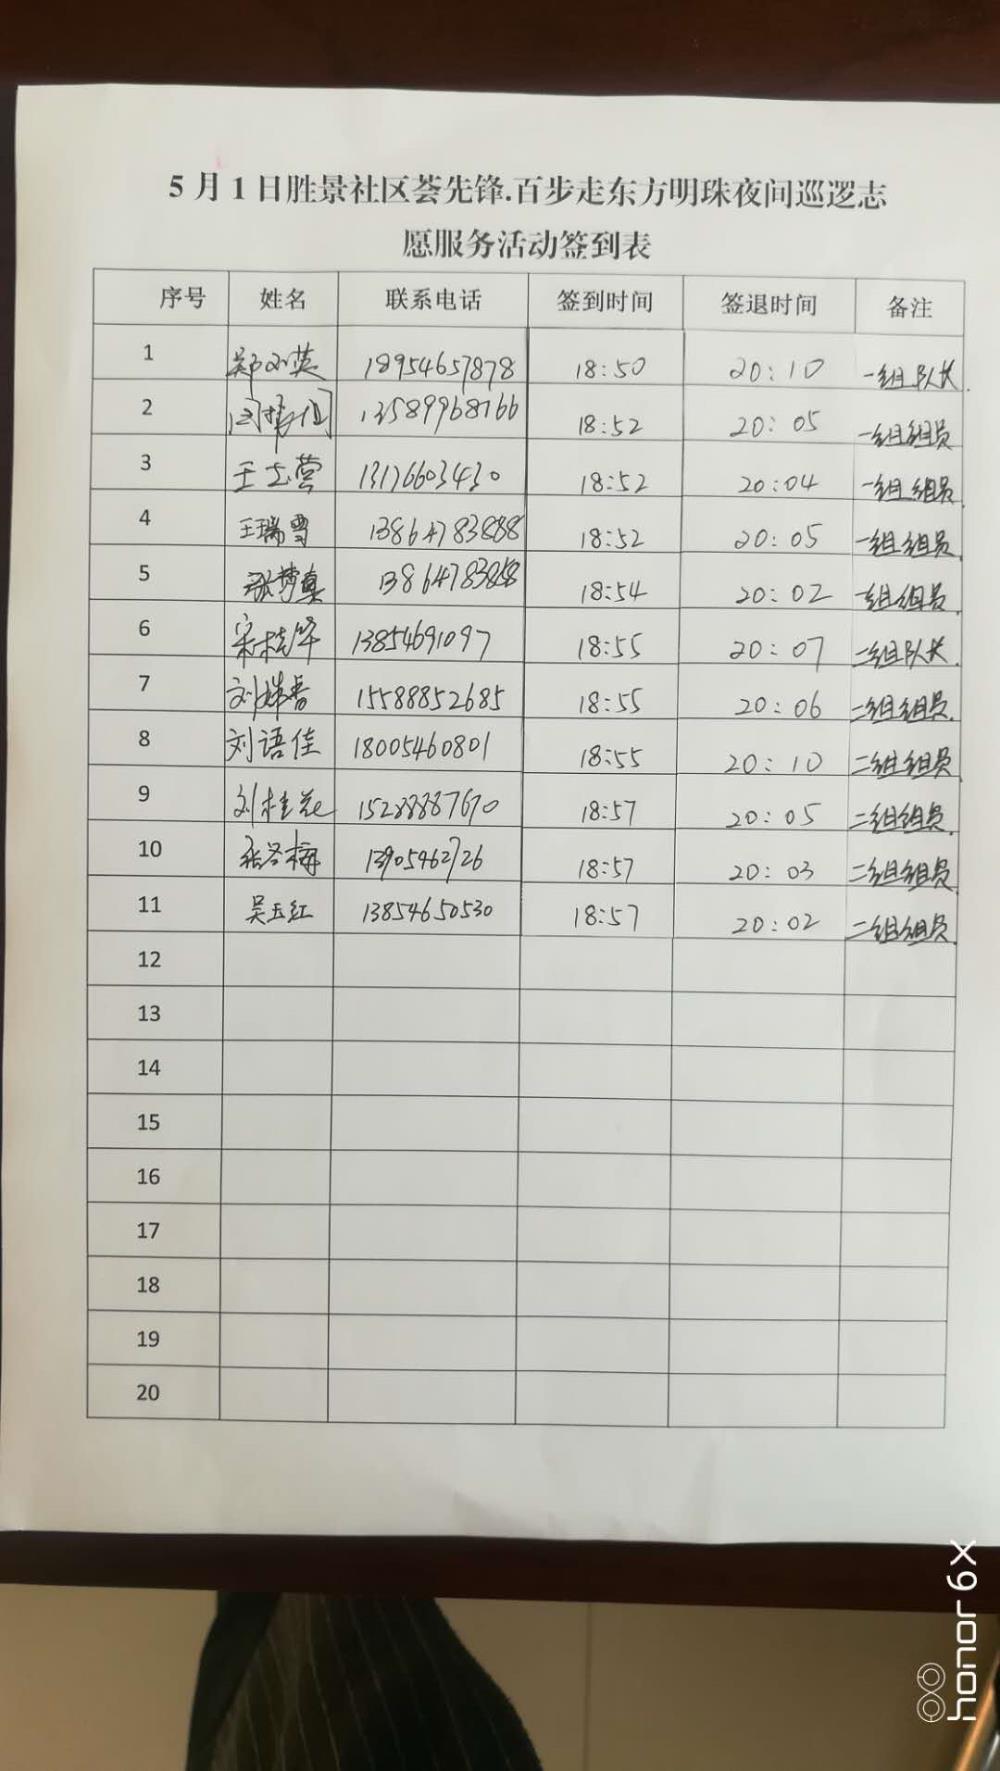 5月1日胜景社区荟先锋.百步走东方明珠夜间巡逻志
愿服务活动签到表
序号 姓名 联系电话 签到时间 签退时间 备注
1 郑小英 18954657878 18:50 20:10 一组队长
2 13589968766 18:52 20:05 一组组员
3 王志营 13176603430 18:52 20:04 一组组员
4 王瑞雪 13864783888 18:52 20:05 一组组员
5 张梦真 18:54 20:02 一组组员
6 宋桂华 13854691097 18:55 20:07 二组队长
7 15588852685 18:55 20:06 二组组员
8 刘语佳 18005460801 18:55 20:10 二组组员
9 刘桂花 18:57 20:05 二组组员
10 张冬梅 18:57 20:03 二组组员
11 吴玉红 13854650530 18:57 20:02 二组组员
12
13
14
15
16
17
18
19
20
honor 6X